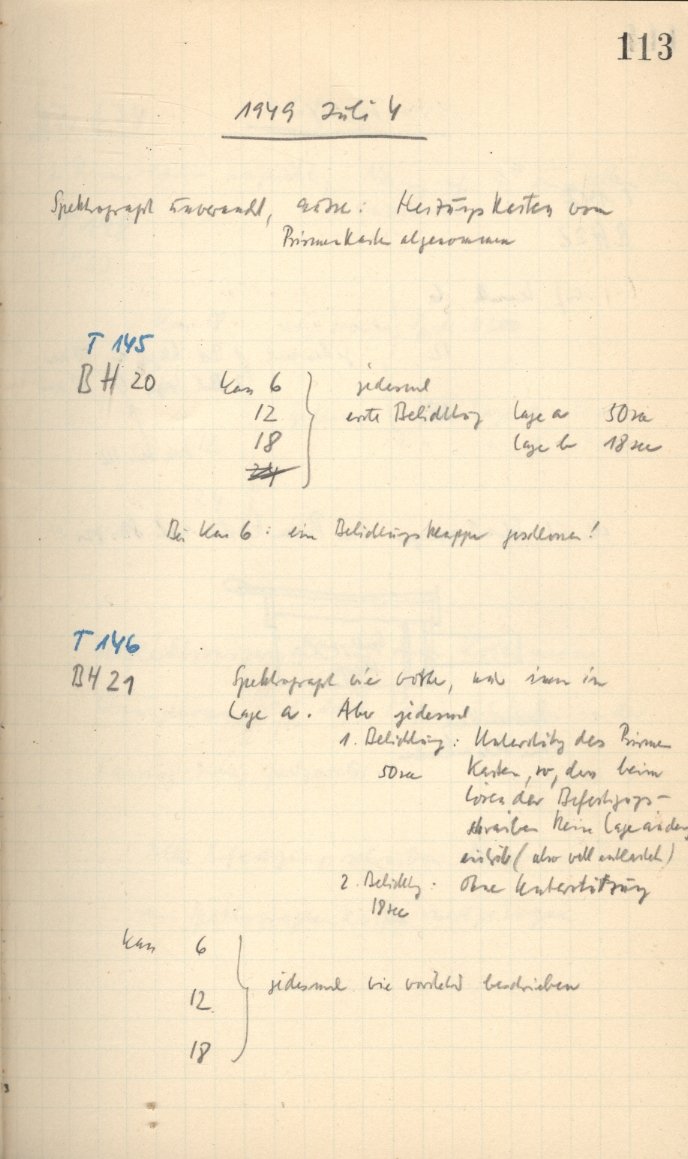 113
1949 Juli 4
Spektrograph unverändt, außer: Heizungskasten vom
Prismenkasten abgenommen
T 145
BH 20 Kass 6 jedesmal
12 erste Belichtung Lage a 50 sec
18 Lage b 18 sec
24
Bei Kass 6: eine Belichtungsklappe geschlossen!
T 146
BH 21 Spektrograph wie vorher, nur immer in
Lage a. Aber jedesmal
1. Belichtung: Unterstütz des Prismen
50 sec kasten, so, dass beim
Lösen der Befestigungs-
schrauben keine Lageänderg
eintritt (also voll entlastet)
2. Belichtg: ohne Unterstützung
18 sec
Kass 6
12 jedesmal wie vorstehd beschrieben
18